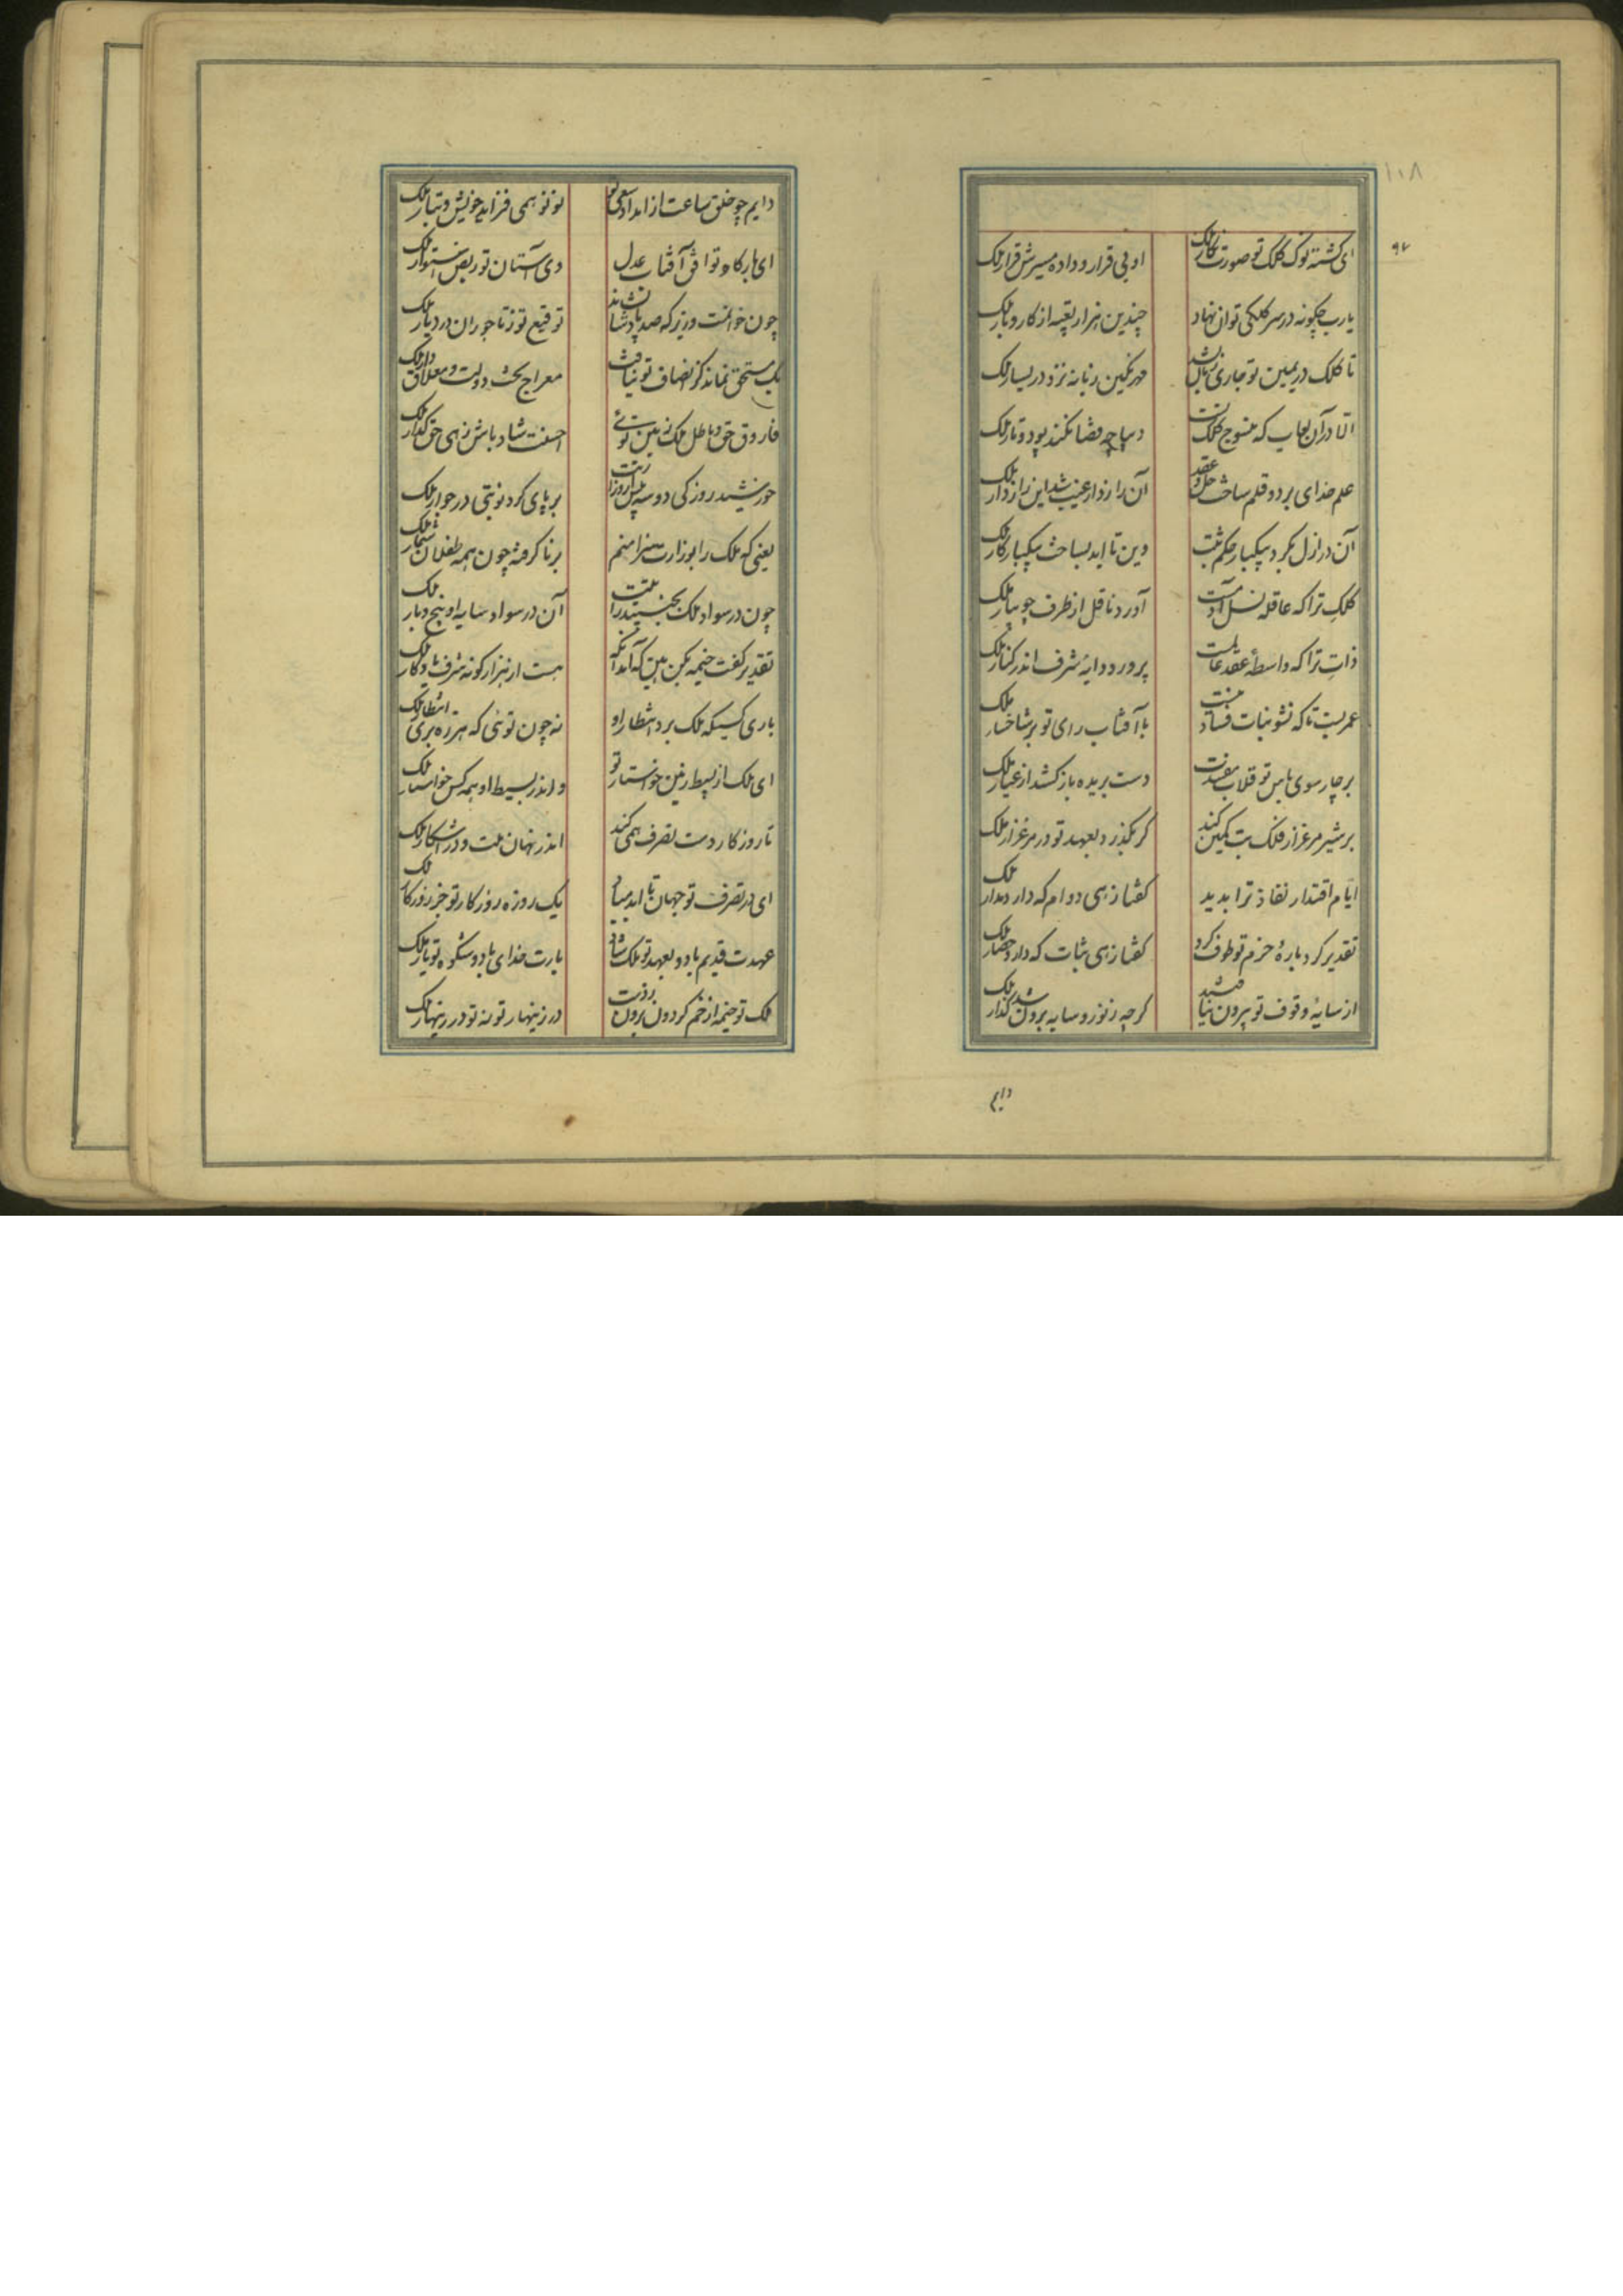 ۱۰۸
۹۷
ای گشته نوک کلک تو صورت نگار ملک او بی قرار و داده مسیرش قرار ملک
یارب چگونه در سر کلکی توان نهاد چندین هزار تعبیه از کار و بار ملک
تا کلک در یمین تو جاری زبان نشد مهر نگین زبانه نزد در یسار ملک
الا در آن لعاب که منسوج کلک تست دیباچه قضا نکند پود و تار ملک
علم خدای بر دو قلم ساخت حل و عقد آن رازدار غیب شد این رازدار ملک
آن در ازل بکرد بیکبار حکم ثبت وین تا ابد بساخت بیکبار کار ملک
کلک ترا که عاقله نسل آدمست آورد ناقل از طرف جویبار ملک
ذات ترا که واسطهٔ عقد عالمست پرورد دایهٔ شرف اندر کنار ملک
عمریست تا که نشو نبات فساد نیست با آفتاب رای تو بر شاخسار ملک
بر چار سوی باس تو قلاب مفسدت دست بریده باز کشد از عیار ملک
بر شیر مرغزار فلک تب کمین کند گر بگذرد بعهد تو در مرغزار ملک
ایام اقتدار نفاذ ترا بدید گفتا زهی دوام که دارد مدار ملک
تقدیر گرد بارهٔ حزم تو طوف کرد گفتا زهی ثبات که دارد حصار ملک
از سایهٔ وقوف تو بیرون نیافتند گرچه ز نور و سایه برون شد گذار ملک
دایم
دایم چو خلق ساعت از امداد سعی تو نو نو همی فزاید خویش و تبار ملک
ای بارگاه تو افق آفتاب عدل وی آستان تو ربض استوار ملک
چون خوانمت وزیر که صد پادشا نشاند توقیع تو ز تاجوران در دیار ملک
یک مستحق نماند کز انصاف تو نیافت معراج بخت و دولت و معلاق دار ملک
فاروق حق و باطل ملک زمین توئی احسنت شاد باش زهی حق گذار ملک
خورشید روزکی دو سه پیش از وزارتت بر پای کرد نوبتی در جوار ملک
یعنی که ملک را بوزارت سزا منم برنا گرفته چون همه طفلان شمار ملک
چون در سواد ملک بجنبید رایتت آن در سواد سایه او پنج و بار ملک
تقدیر گفت خیمه بکن هین که آمد آنکه هست از هزار گونه شرف یادگار ملک
باری کسیکه ملک برد انتظار او نه چون توئی که هرزه بری انتظار ملک
ای ملک از بسیط زمین خواستار تو و اندر بسیط او همه کس خواستار ملک
تا روزگار دست تصرف همی کند اندر نهان ملت و در آشکار ملک
ای در تصرف تو جهان تا ابد مباد یک روزه روزگار تو جز روزگار ملک
عهدت قدیم باد و بعهد تو ملک شاد یارت خدای باد و شکوه تو یار ملک
ملک تو خیمه از خم گردون برون زدت در زینهار تو نه تو در زینهار ملک